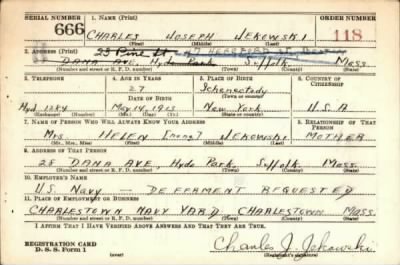 SERIAL NUMBER 1. NAME (Print) ORDER NUMBER
666 CHARLES JOSEPH JEKOWSKI 118
(First) (Middle) (Last)
2. ADDRESS (Print) 25 Pine St HEREFORD ST
28 DANA AVE, Hyde Park Suffolk Mass
(Number and street or R. F. D. number) (Town) (County) (State)
3. TELEPHONE 4. AGE IN YEARS 5. PLACE OF BIRTH 6. COUNTRY OF CITIZENSHIP
27 Schenectady
DATE OF BIRTH (Town or county)
Hyd 1284 May 14, New York U.S.A
(Exchange) (No.) (Mo.) (Day) (Yr.) (State or country)
7. NAME OF PERSON WHO WILL ALWAYS KNOW YOUR ADDRESS 8. RELATIONSHIP OF THAT PERSON
Mrs HELEN (none) JEKOWSKI MOTHER
(Mr., Mrs., Miss) (First) (Middle) (Last)
9. ADDRESS OF THAT PERSON
28 DANA AVE, Hyde Park, Suffolk Mass.
(Number and street or R. F. D. number) (Town) (County) (State)
10. EMPLOYER'S NAME
U.S. Navy — DEFERMENT REQUESTED
11. PLACE OF EMPLOYMENT OR BUSINESS
CHARLESTOWN NAVY YARD CHARLESTOWN Mass
(Number and street or R. F. D. number) (Town) (County) (State)
I AFFIRM THAT I HAVE VERIFIED ABOVE ANSWERS AND THAT THEY ARE TRUE.
REGISTRATION CARD
D. S. S. Form 1 (over) Charles J. Jekowski
(Registrant's signature)